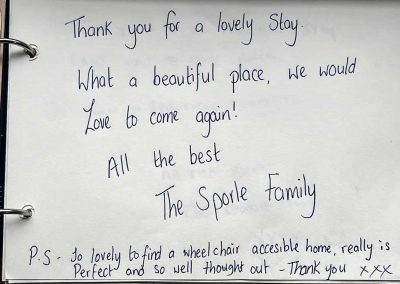 Thank you for a lovely Stay.
What a beautiful place, we would
Love to come again!
All the best
The Sporle Family
P.S - So lovely to find a wheelchair accesible home, really is
Perfect and so well thought out - Thank you xxx